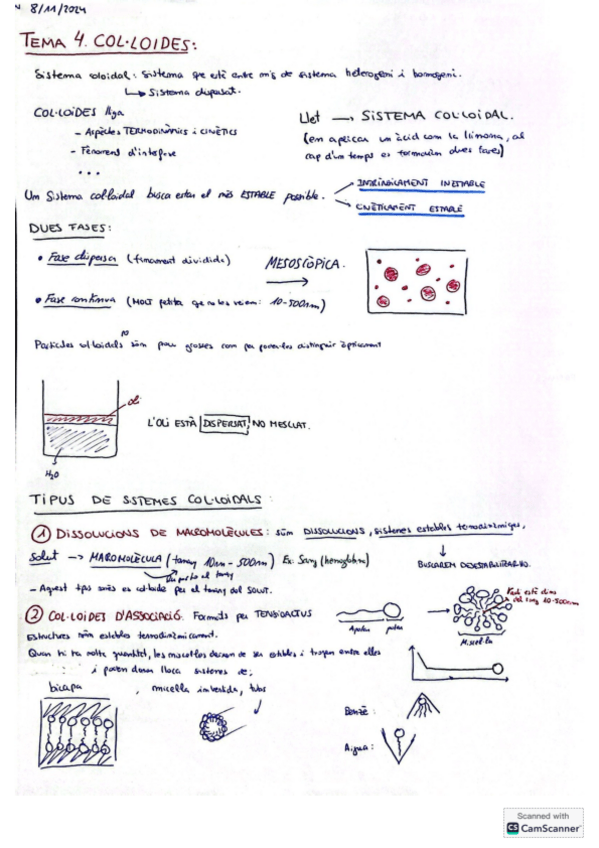 8/11/2024
TEMA 4. COL·LOIDES:
Sistema coloidal: Sistema que està entre mig de sistema heterogeni i homogeni.
↳ Sistema dispersat.
COL·LOIDES lliga
- Aspectes TERMODINÀMICS i CINÈTICS
- Fenomens d'interfase
...
Llet → SISTEMA COL·LOIDAL.
(en aplicar un àcid com la llimona, al
cap d'un temps es formarien dues fases)
Um Sistema col·loidal busca estar el més ESTABLE possible.
INTRÍNSICAMENT INESTABLE
CINÈTICAMENT ESTABLE
DUES FASES:
• Fase dispersa (finament dividida)
MESOSCÒPICA.
• Fase contínua (MOLT petita que no les veiem: 10-500nm)
Partícules col·loidals són prou grosses com per poder-les distingir òpticament
no
oli
L'OLI ESTÀ DISPERSAT, NO MESCLAT.
H2O
TIPUS DE SISTEMES COL·LOIDALS:
① DISSOLUCIONS DE MACROMOLÈCULES: són DISSOLUCIONS, sistemes estables
Solut → MACROMOLÈCULA (tamany 10nm - 500nm) Ex: Sang (hemoglobina)
BUSCAREM DESESTABILITZAR-HO.
- Aquest tipus només es col·loide per el tamany del SOLUT.
② COL·LOIDES D'ASSOCIACIÓ. Formats per TENSIOACTIUS
Apolar
polar
Micel·la
10-500nm
Estructures són estables termodinàmicament.
Quan hi ha molta quantitat, les micel·les deixen de ser estables i xoquen entre elles
i poden donar lloc a sistemes de:
bicapa, micel·la invertida, tubs
Benzè:
Aigua:
Scanned with
CS CamScanner